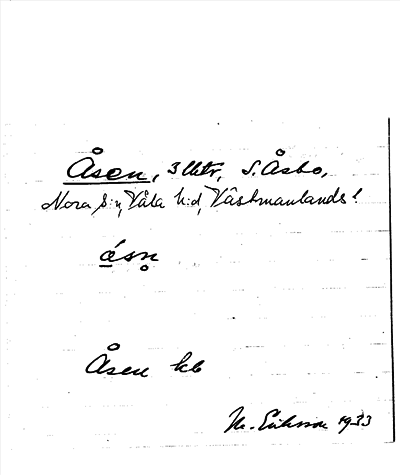 Åsen, 3 lktr, S. Åsbo,
Nora s:n, Våla h:d, Västmanlands l
åsn̥
Åsen kb
M. Eriksson 1933